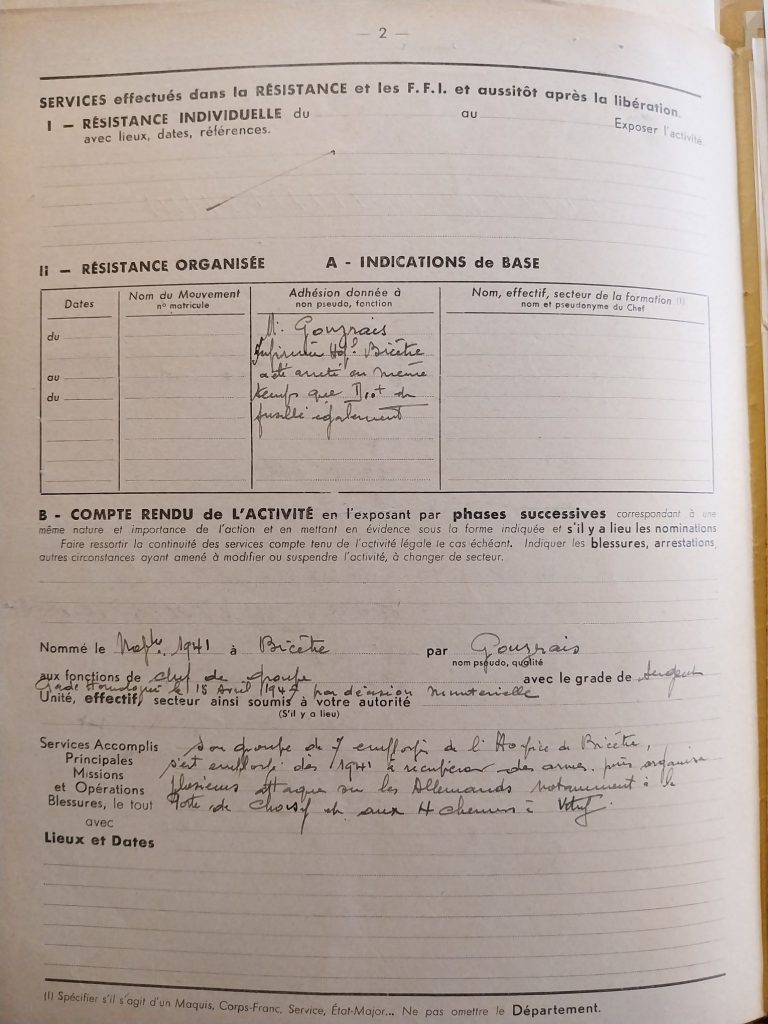 — 2 —
SERVICES effectués dans la RÉSISTANCE et les F.F.I. et aussitôt après la libération.
I — RÉSISTANCE INDIVIDUELLE du au Exposer l'activité
avec lieux, dates, références.
II — RÉSISTANCE ORGANISÉE A - INDICATIONS de BASE
Dates
Nom du Mouvement
n° matricule
Adhésion donnée à
non pseudo, fonction
Nom, effectif, secteur de la formation (1)
nom et pseudonyme du Chef
du
au
du
Mr. Gouzrais
Infirmier Hop. Bicêtre
a été arrêté en même
temps que et
fusillé également
B - COMPTE RENDU de L'ACTIVITÉ en l'exposant par phases successives correspondant à une
même nature et importance de l'action et en mettant en évidence sous la forme indiquée et s'il y a lieu les nominations
Faire ressortir la continuité des services compte tenu de l'activité légale le cas échéant. Indiquer les blessures, arrestations,
autres circonstances ayant amené à modifier ou suspendre l'activité, à changer de secteur.
Nommé le 1941 à Bicêtre par Gouzrais
nom pseudo, qualité
aux fonctions de chef de groupe avec le grade de Sergent
Grade homologué le 15 Avril 194 par décision ministérielle
Unité, effectif, secteur ainsi soumis à votre autorité
(S'il y a lieu)
Services Accomplis
Principales
Missions
et Opérations
Blessures, le tout
avec
Lieux et Dates
Son groupe de 7 employés de l'Hospice de Bicêtre,
s'est employé dès 1941 à récupérer des armes, puis organisa
plusieurs attaques sur les Allemands notamment à la
Porte de Choisy et aux 4 chemins à Vitry.
(1) Spécifier s'il s'agit d'un Maquis, Corps-Franc, Service, État-Major... Ne pas omettre le Département.